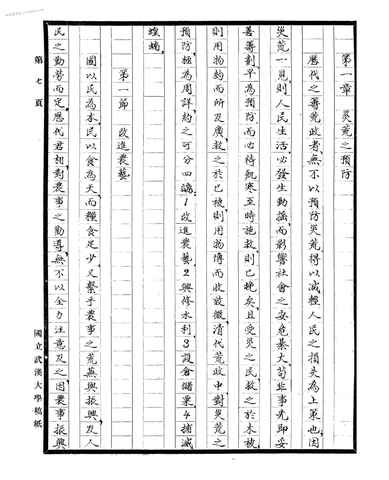 第一章 災荒之預防
歷代之籌荒政者無不以預防災荒得以減輕人民之損失為上策也因
災荒一見則人民生活必發生動搖而影響社會之安危綦大苟非事先即妥
善籌劃早為預防而必待飢寒至時施救則已晚矣且受災之民救之於未被
則用物約而所及廣救之於已被則用物博而收效微清代荒政中對災荒之
預防極為周詳約之可分四端1改進農藝2興修水利3設倉儲粟4捕滅
蝗蝻
第一節 改進農藝
國以民為本民以食為天而糧食足少又繫乎農事之荒蕪與振興及人
民之勤勞而定歷代君相對農事之勸導無不以全力注意及之因農事振興
第七頁
國立武漢大學稿紙